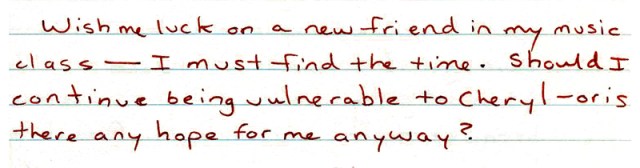 Wish me luck on a new friend in my music
class — I must find the time. Should I
continue being vulnerable to Cheryl - or is
there any hope for me anyway?